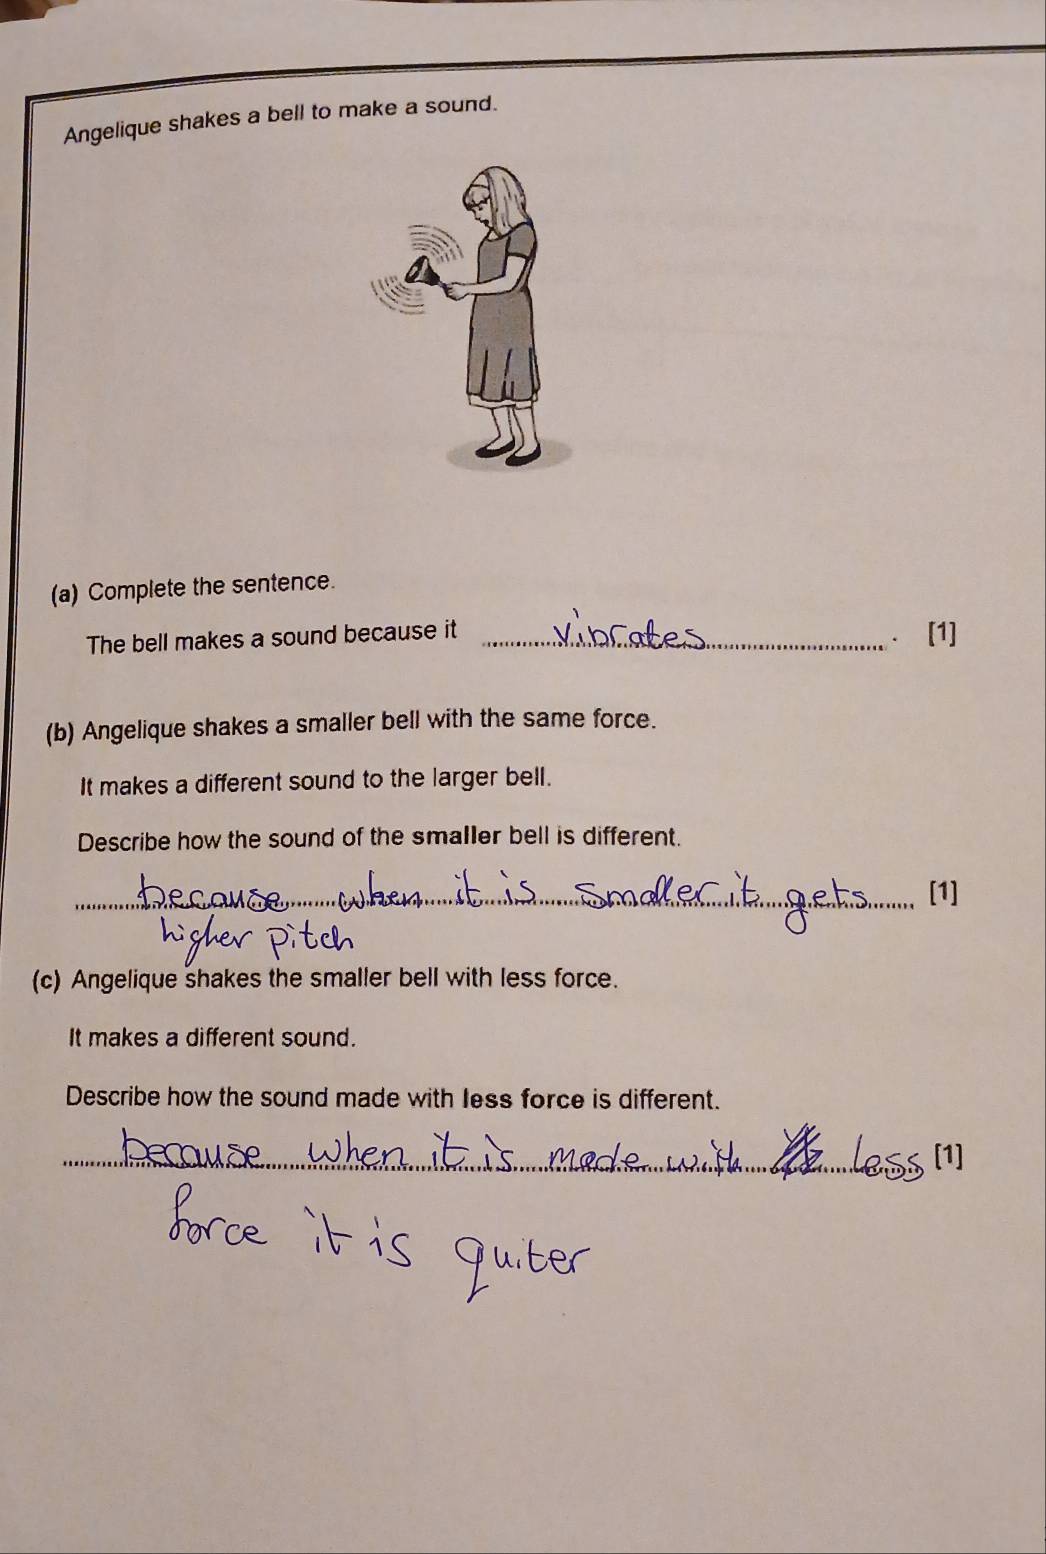 Angelique shakes a bell to make a sound.
(a) Complete the sentence.
The bell makes a sound because it vibrates. [1]
(b) Angelique shakes a smaller bell with the same force.
It makes a different sound to the larger bell.
Describe how the sound of the smaller bell is different.
because when it is smaller it gets [1]
higher pitch
(c) Angelique shakes the smaller bell with less force.
It makes a different sound.
Describe how the sound made with less force is different.
because when it is made with less [1]
force it is quiter